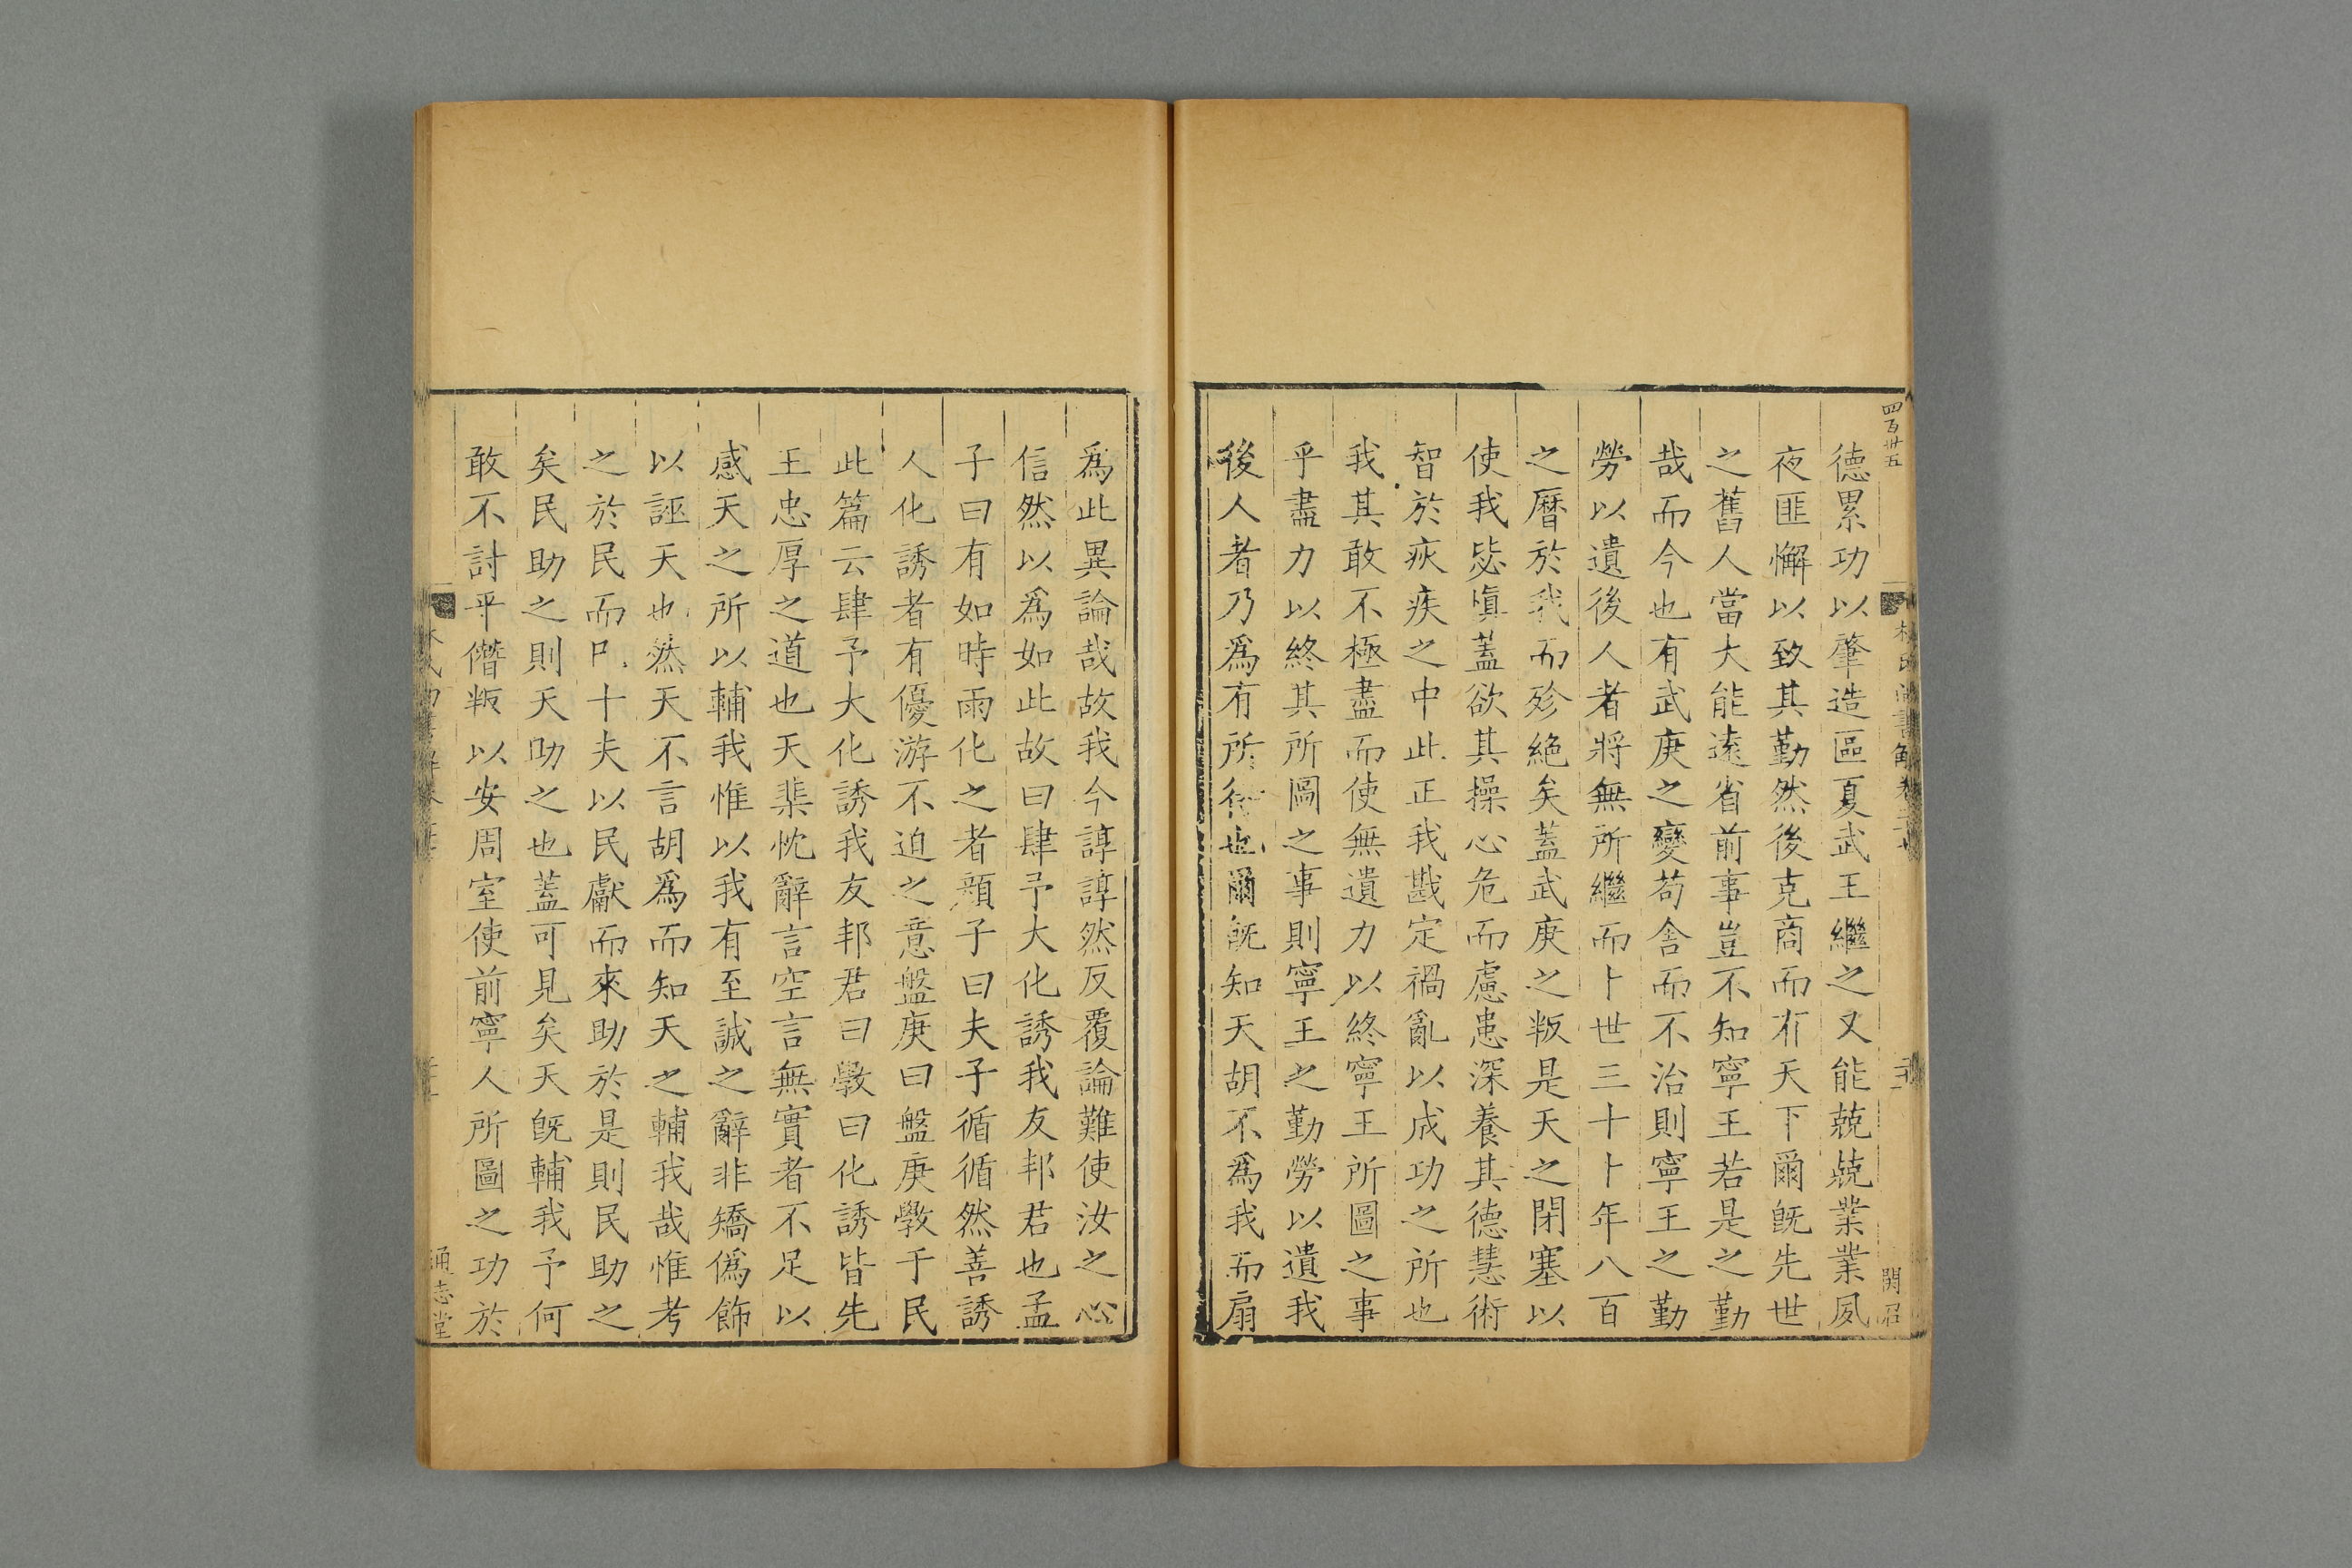 四百卅五
德累功以肇造區夏武王繼之又能兢兢業業夙
夜匪懈以致其勤然後克商而有天下爾旣先世
之舊人當大能遠省前事豈不知寧王若是之勤
哉而今也有武庚之變苟舍而不治則寧王之勤
勞以遺後人者將無所繼而卜世三十卜年八百
之曆於我而殄絕矣蓋武庚之叛是天之閉塞以
使我毖愼蓋欲其操心危而慮患深養其德慧術
智於疢疾之中此正我戡定禍亂以成功之所也
我其敢不極盡而使無遺力以終寧王所圖之事
乎盡力以終其所圖之事則寧王之勤勞以遺我
後人者乃爲有所也爾旣知天胡不爲我而扇
爲此異論哉故我今諄諄然反覆論難使汝之心
信然以爲如此故曰肆予大化誘我友邦君也孟
子曰有如時雨化之者顏子曰夫子循循然善誘
人化誘者有優游不迫之意盤庚曰盤庚斆于民
此篇云肆予大化誘我友邦君曰斆曰化誘皆先
王忠厚之道也天棐忱辭言空言無實者不足以
感天之所以輔我惟以我有至誠之辭非矯僞飾
以誣天也然天不言胡爲而知天之輔我哉惟考
之於民而已十夫以民獻而來助於是則民助之
矣民助之則天助之也蓋可見矣天旣輔我予何
敢不討平僭叛以安周室使前寧人所圖之功於
通志堂